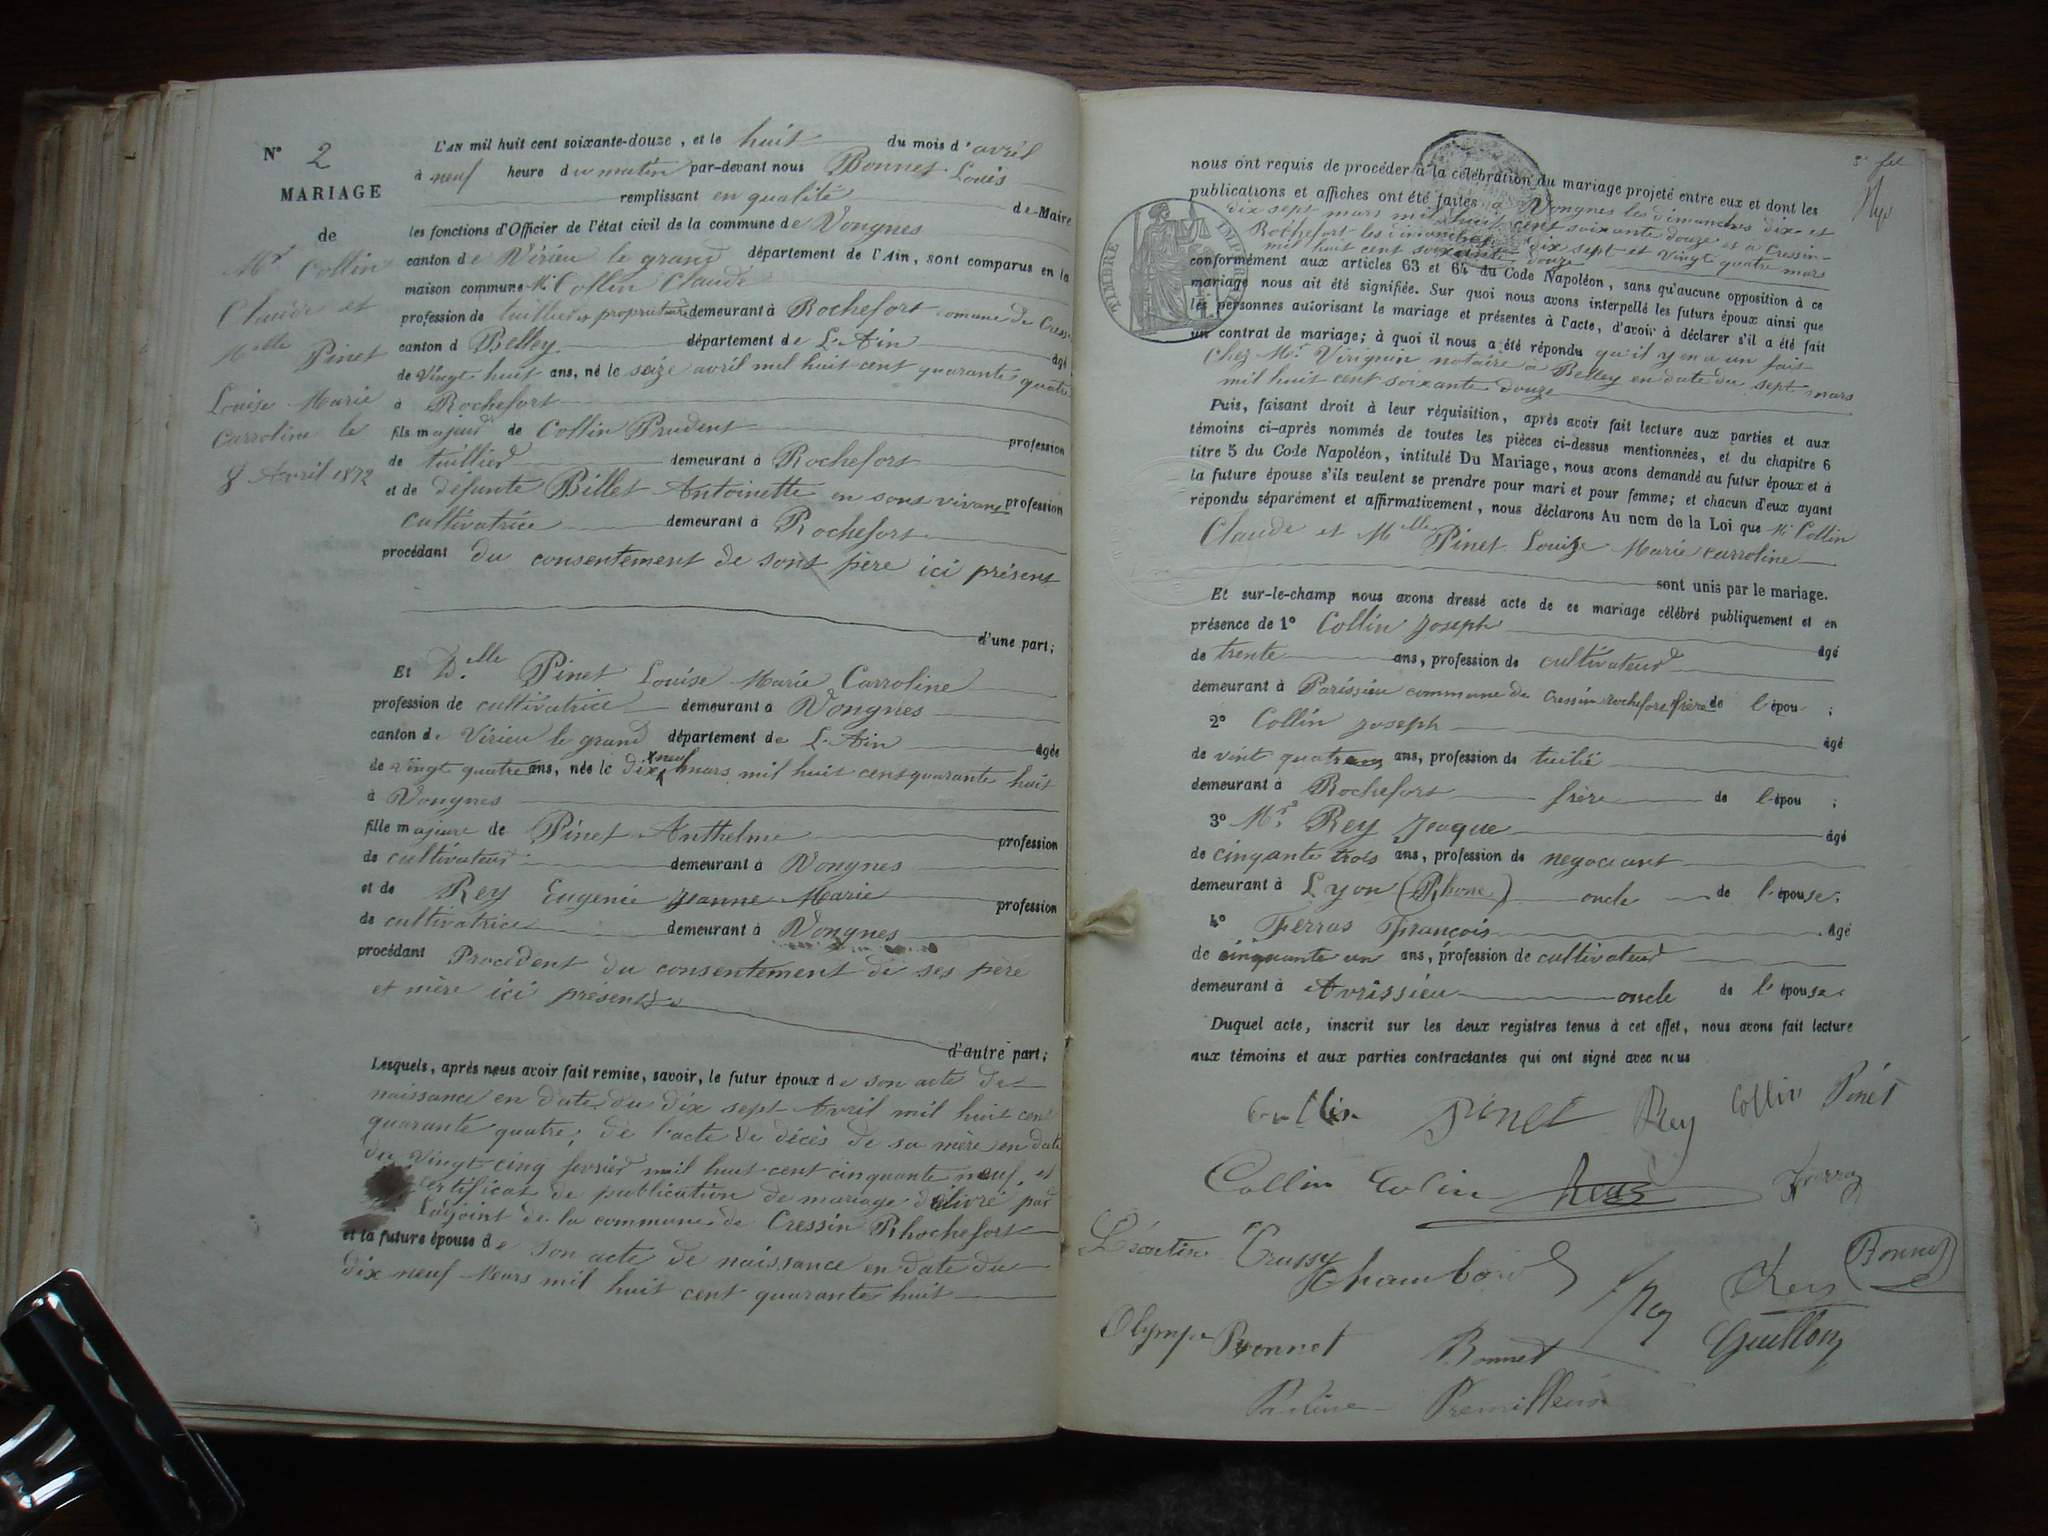 N° 2
MARIAGE
de
Mr Collin
Claude et
Melle Pinet
Louise Marie
Carroline le
8 Avril 1872
L'AN mil huit cent soixante-douze, et le huit du mois d'avril
à neuf heure du matin par-devant nous Bonnet Louis
remplissant en qualité de Maire
les fonctions d'Officier de l'état civil de la commune de Vongnes
canton de Virieu le grand département de l'Ain, sont comparus en la
maison commune Mr Collin Claude
profession de tuillier propriétaire demeurant à Rochefort comune de Cress
canton d Belley département de L'Ain âgé
de vingt huit ans, né le seize avril mil huit cent quarante quatre
à Rochefort
fils majeur de Collin Prudent profession
de tuillier demeurant à Rochefort
et de défunte Billet Antoinette en sons vivant profession
cultivatrice demeurant à Rochefort
procédant du consentement de sont père ici présent
d'une part;
Et D.elle Pinet Louise Marie Carroline
profession de cultivatrice demeurant à Vongnes
canton de Virieu le grand département de L'Ain âgée
de vingt quatre ans, née le dix neuf mars mil huit cent quarante huit
à Vongnes
fille majeure de Pinet Anthelme profession
de cultivateur demeurant à Vongnes
et de Rey Eugénie Jeanne Marie profession
de cultivatrice demeurant à Vongnes
procédant Procédent du consentement de ses père
et mère ici présents
d'autre part;
Lesquels, après nous avoir fait remise, savoir, le futur époux de son acte de
naissance en date du dix sept Avril mil huit cent
quarante quatre; de l'acte de décès de sa mère en date
du vingt cinq fevrier mil huit cent cinquante neuf, et
certificat de publication de mariage délivré par
L'ajoint de la commune de Cressin Rhochefort
et la future épouse de son acte de naissance en date du
dix neuf Mars mil huit cent quarante huit
nous ont requis de procéder à la célébration du mariage projeté entre eux et dont les
publications et affiches ont été faites à Vongnes les dimanches dix et
dix sept mars mil huit cent soixante douze et à Cressin
Rochefort les dimanches dix sept et vingt quatre mars
mil huit cent soixante douze
conformément aux articles 63 et 64 du Code Napoléon, sans qu'aucune opposition à ce
mariage nous ait été signifiée. Sur quoi nous avons interpellé les futurs époux ainsi que
les personnes autorisant le mariage et présentes à l'acte, d'avoir à déclarer s'il a été fait
un contrat de mariage; à quoi il nous a été répondu qu'il y en a un fait
Chez Mr Virignin notaire à Belley en date du sept mars
mil huit cent soixante douze
TIMBRE IMPER
Puis, faisant droit à leur réquisition, après avoir fait lecture aux parties et aux
témoins ci-après nommés de toutes les pièces ci-dessus mentionnées, et du chapitre 6
titre 5 du Code Napoléon, intitulé Du Mariage, nous avons demandé au futur époux et à
la future épouse s'ils veulent se prendre pour mari et pour femme; et chacun d'eux ayant
répondu séparément et affirmativement, nous déclarons Au nom de la Loi que Mr Collin
Claude et Melle Pinet Louise Marie Carroline
sont unis par le mariage.
Et sur-le-champ nous avons dressé acte de ce mariage célébré publiquement et en
présence de 1° Collin Joseph âgé
de trente ans, profession de cultivateur
demeurant à Parissieu commune de Cressin rochefort frère de l'épou ;
2° Collin Joseph âgé
de vint quatre ans, profession de tuilié
demeurant à Rochefort frère de l'épou ;
3° Mr Rey Jaque âgé
de cinquante trois ans, profession de negociant
demeurant à Lyon (Rhone) oncle de l'épouse.
4° Ferras François âgé
de cinquante un ans, profession de cultivateur
demeurant à Avrissieu oncle de l'épouse
Duquel acte, inscrit sur les deux registres tenus à cet effet, nous avons fait lecture
aux témoins et aux parties contractantes qui ont signé avec nous
Collin Pinet Rey Collin Pinet
Collin Colin
Léontine Trussy Chambard Rey Bonnet
Olympe Bonnet Bonnet Guillon
Pauline